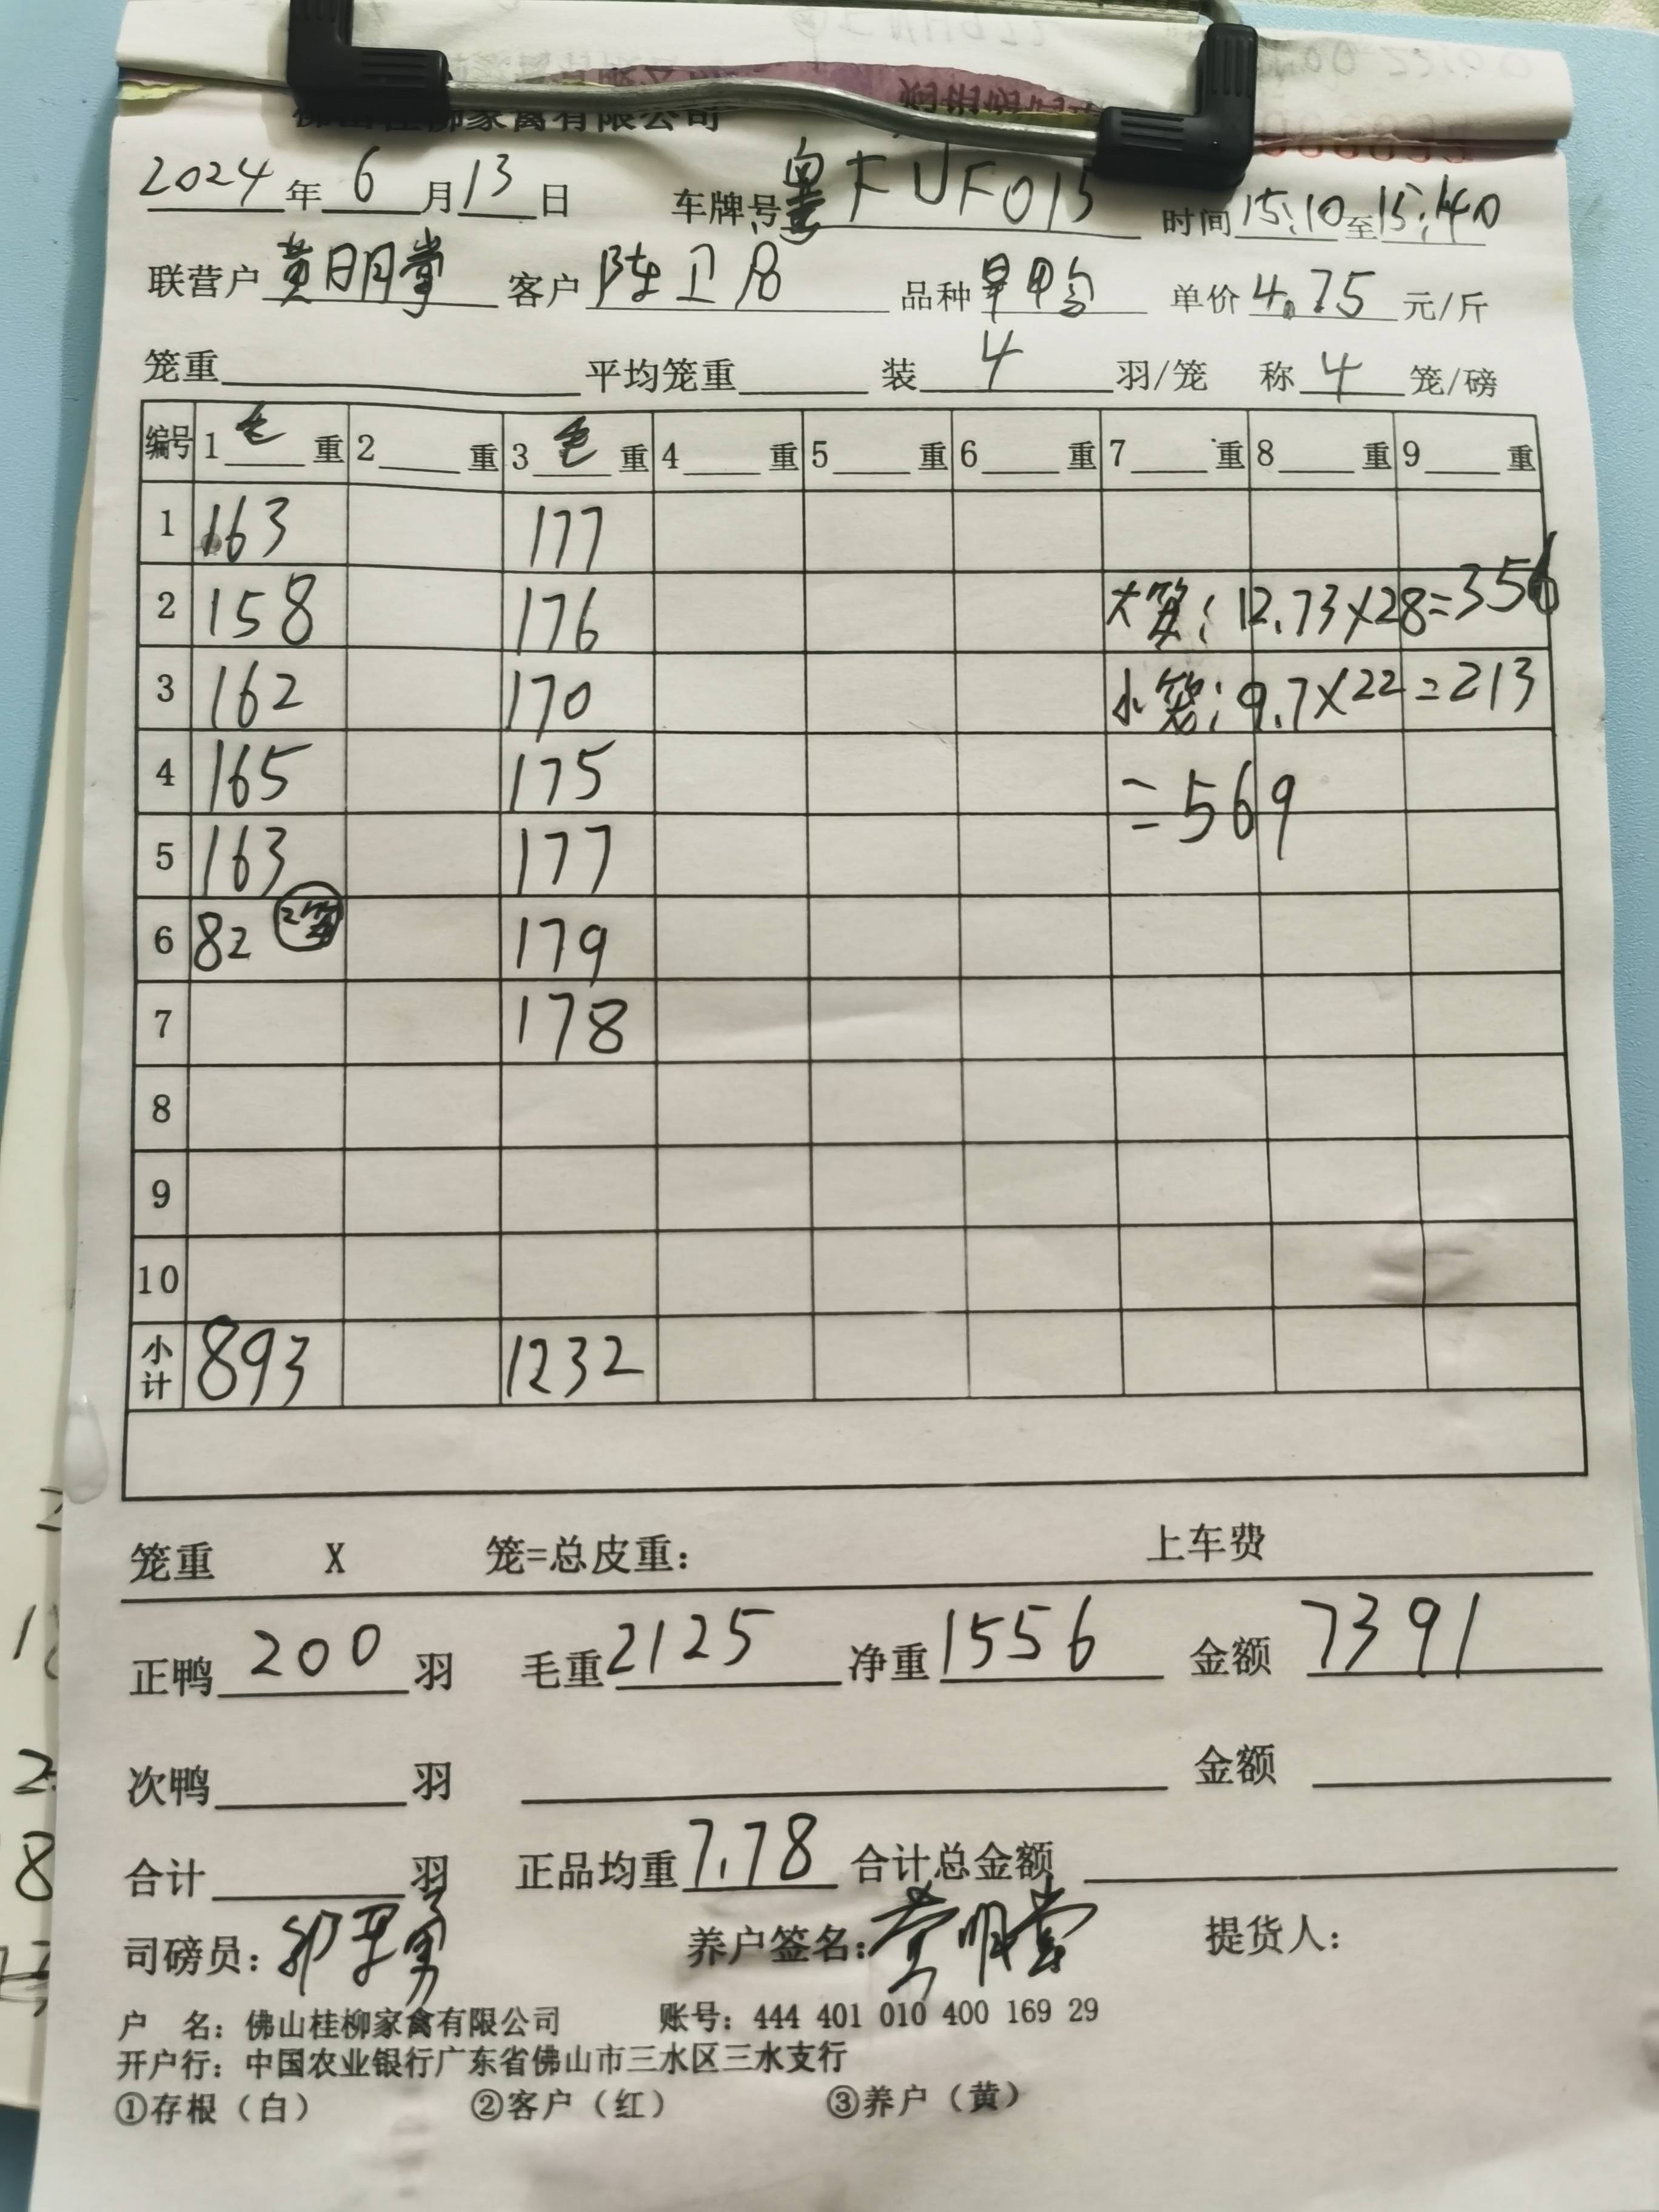 佛山桂柳家禽有限公司
2024年6月13日 车牌号粤FUF015 时间15:10至15:40
联营户黄明掌 客户陈卫 品种旱鸭 单价4.75元/斤
笼重 平均笼重 装4羽/笼 称4笼/磅
编号 1毛重 2重 3毛重 4重 5重 6重 7重 8重 9重
1 163 177
2 158 176 大笼:12.73×28=356
3 162 170 小笼:9.7×22=213
4 165 175 =569
5 163 177
6 82 2笼 179
7 178
8
9
10
小计 893 1232
笼重 X 笼=总皮重: 上车费
正鸭200羽 毛重2125 净重1556 金额7391
次鸭 羽 金额
合计 羽 正品均重7.78 合计总金额
司磅员: 养户签名:黄明掌 提货人:
户 名:佛山桂柳家禽有限公司 账号:444 401 010 400 169 29
开户行:中国农业银行广东省佛山市三水区三水支行
①存根(白) ②客户(红) ③养户(黄)